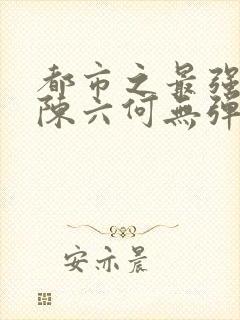 都市之最强
陈六何無弹
安亦晨